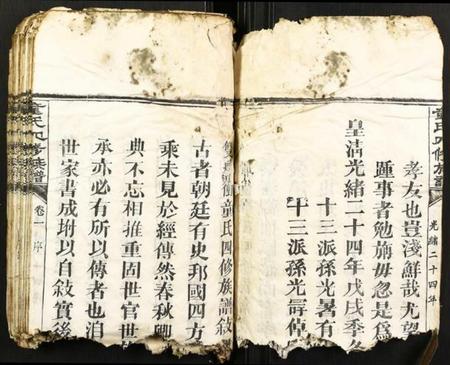 孝友也豈淺鮮哉尤望
踵事者勉旃毋忽是爲
皇清光緒二十四年戊戌季冬
十三派孫光暑有
十三派孫光
童氏四修族譜
光緒二十四年
童氏四修族譜敘
古者朝廷有史邦國四方
乘未見於經傳然春秋卿
典不忘相推重固世官世
承亦必有所以傳者也洎
世家書成坿以自敍實後
童氏四修族譜
卷一序